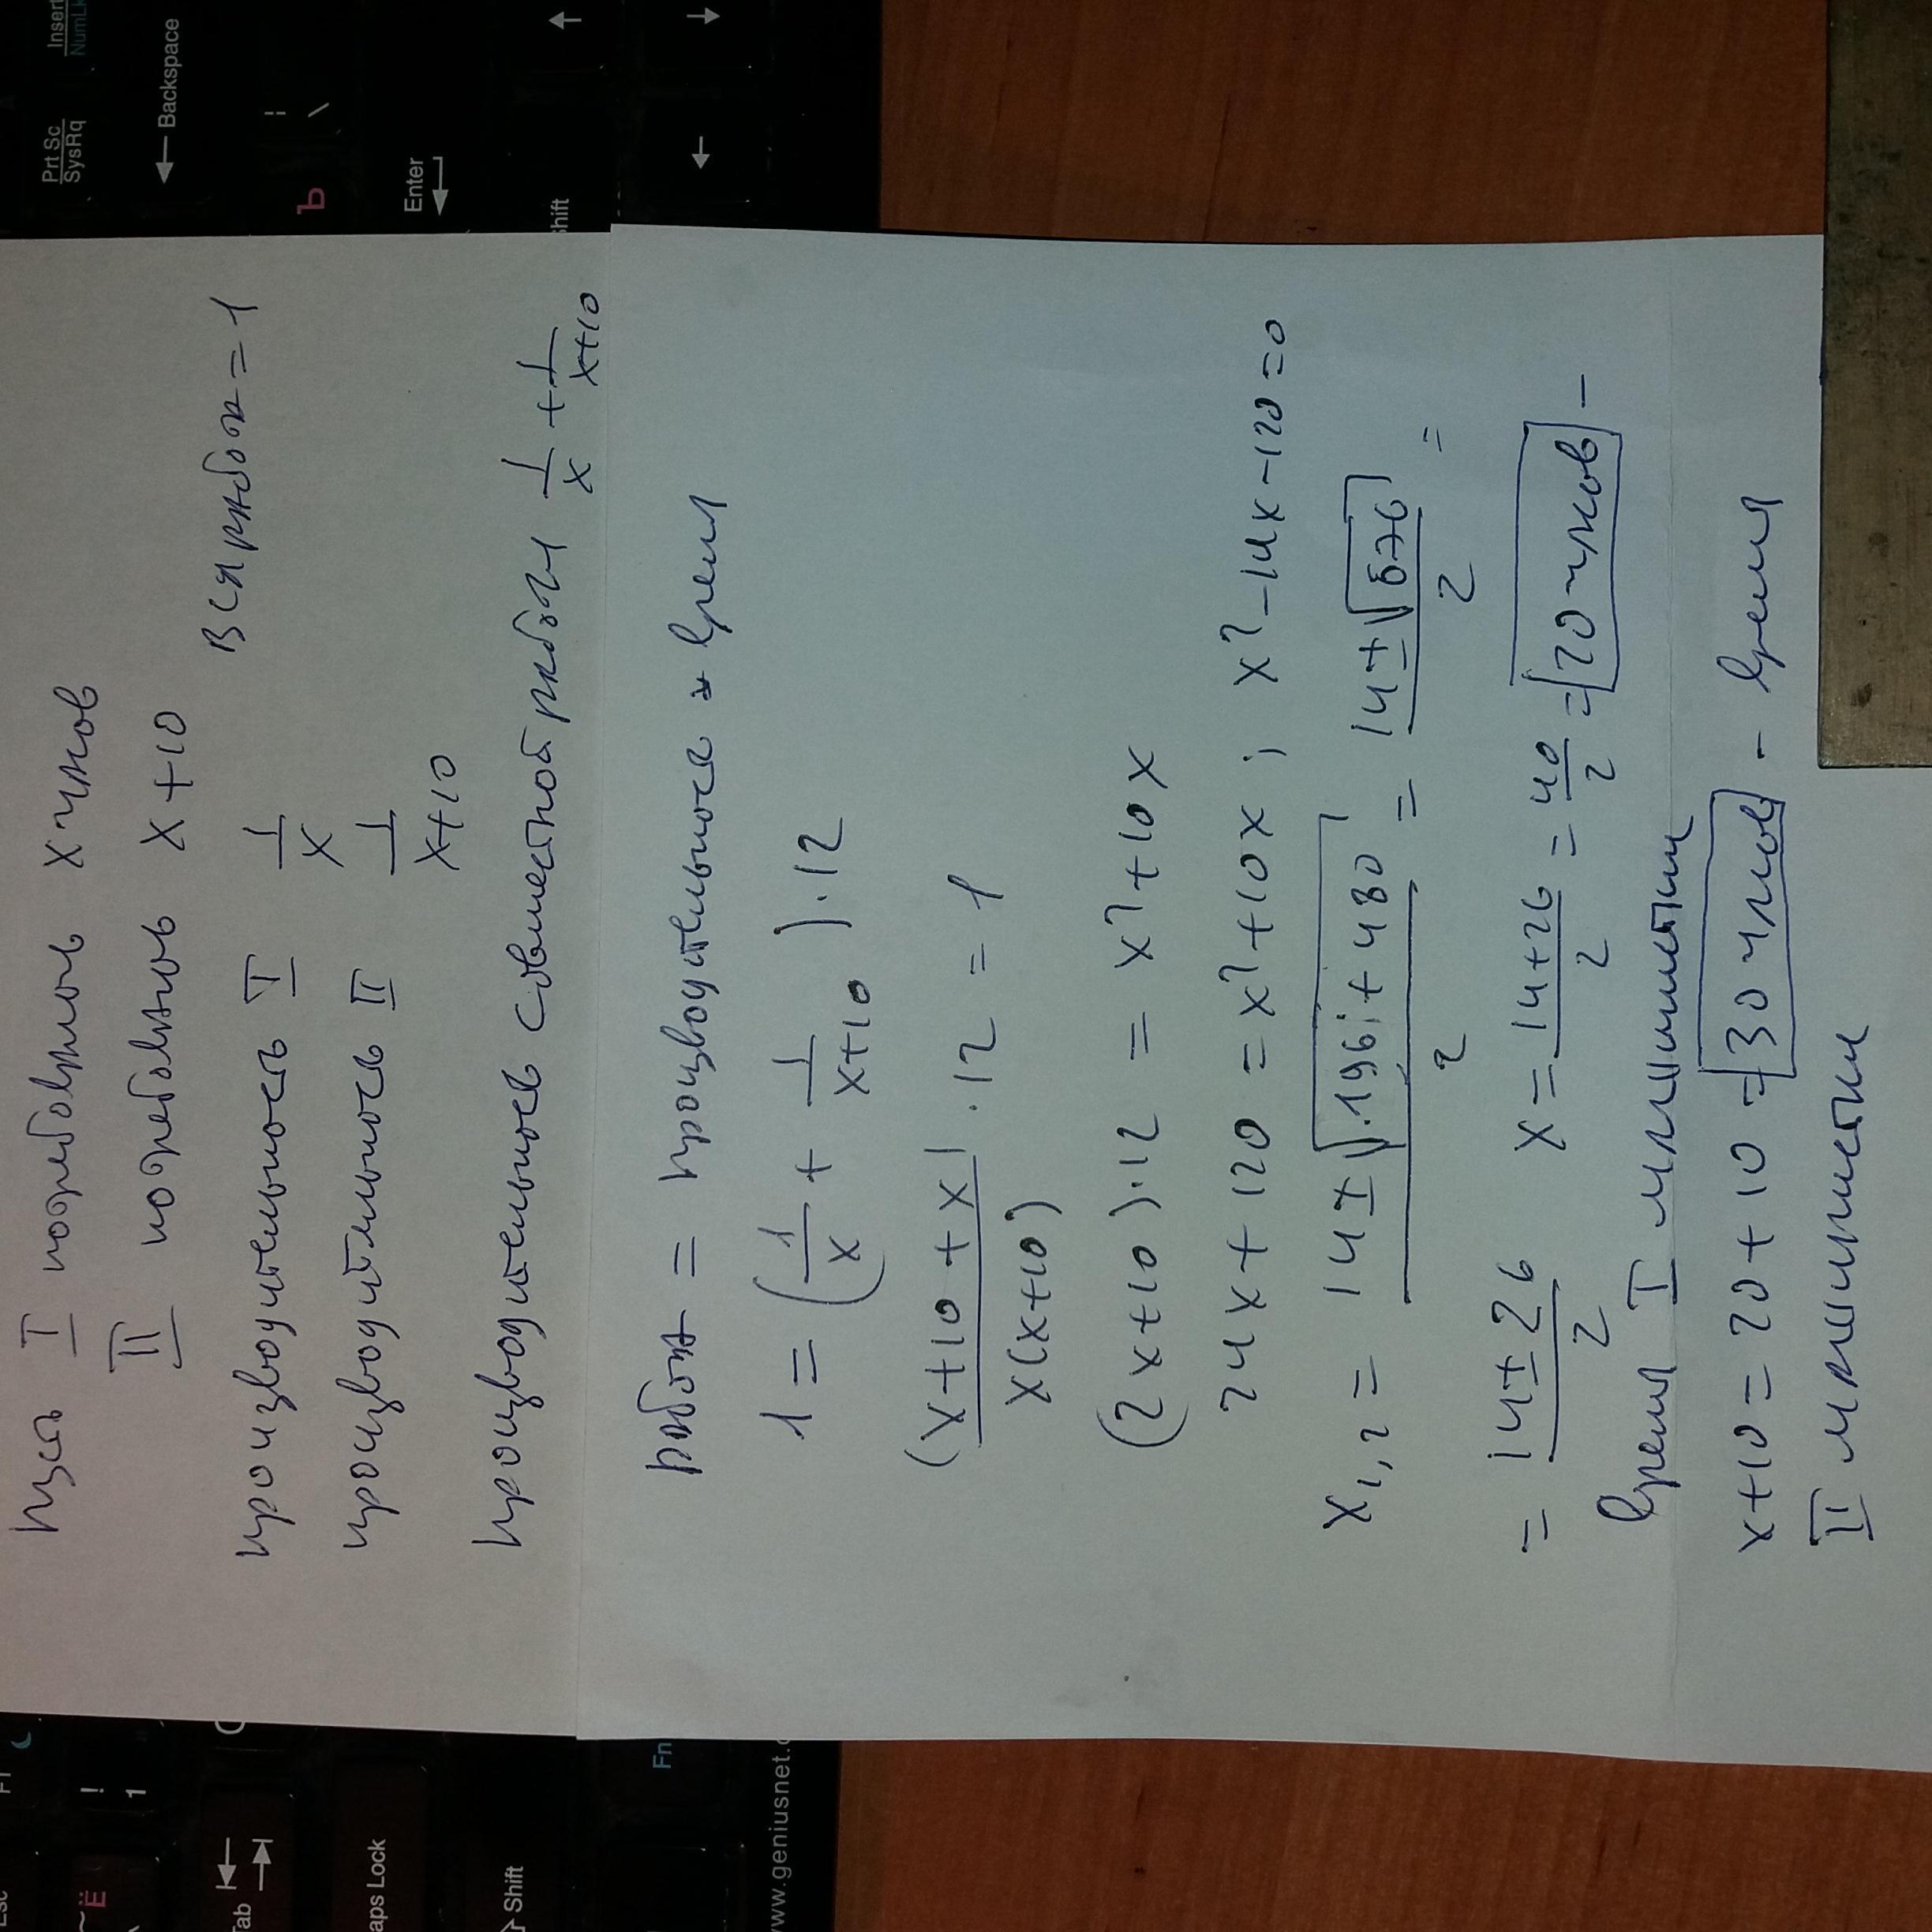 Пусть I потребовалось x часов
II потребовалось x + 10
Вся работа = 1
производительность I 1/x
производительность II 1/(x+10)
производительность совместной работы 1/x + 1/(x+10)
Работа = производительность * время
1 = (1/x + 1/(x+10)) · 12
(x+10 + x)/(x(x+10)) · 12 = 1
(2x+10) · 12 = x² + 10x
24x + 120 = x² + 10x ; x² - 14x - 120 = 0
x1,2 = (14 ± √(196 + 480))/2 = (14 ± √676)/2 =
= (14 ± 26)/2 x = (14 + 26)/2 = 40/2 = 20 часов -
время I машинистки
x + 10 = 20 + 10 = 30 часов - время
II машинистки
Insert
NumLk
Prt Sc
SysRq
← Backspace
Ъ
\
Enter
Shift
↑
←
↓
Esc
F1
~
Ё
!
1
Tab
Caps Lock
Shift
Fn
www.geniusnet.